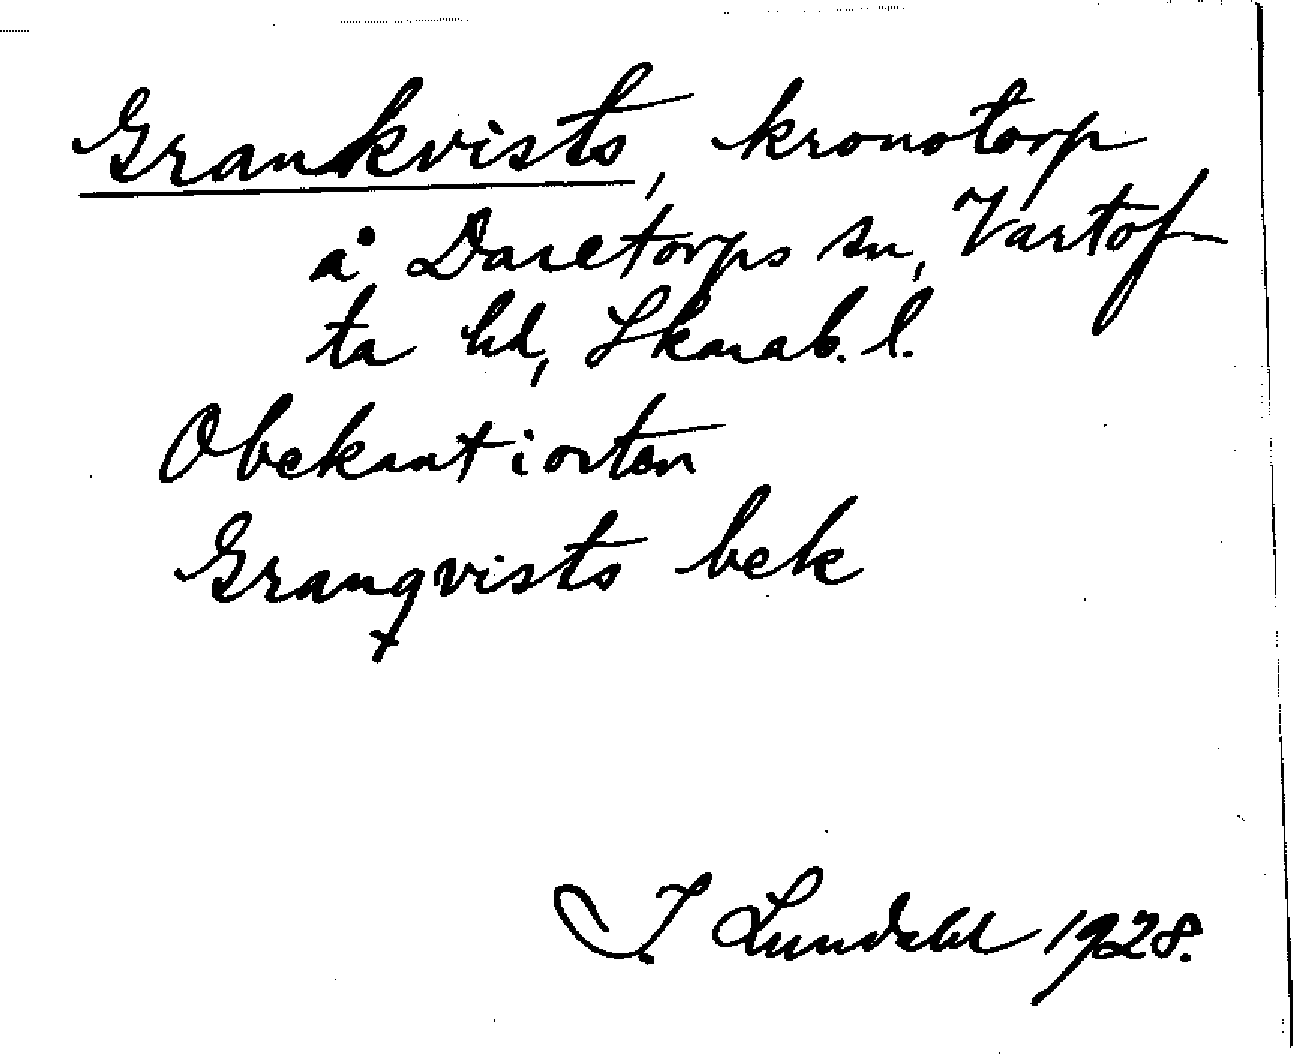 Grankvists, kronotorp
å Daretorps sn, Vartof-
ta hd, Skarab. l.
Obekant i orten
Granqvists bek
x
I. Lundahl 1928.